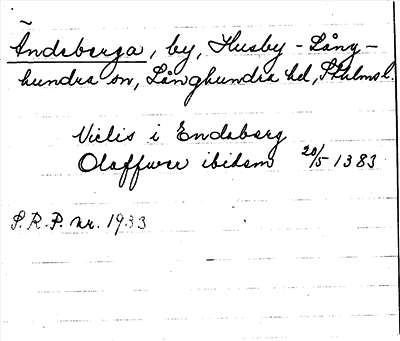 Ändeberga, by, Husby-Lång-
hundra sn, Långhundra hd, Sthlms l.
Niclis i Endaberg
Olaffwer ibidem 20/5 1383
S.R.P. nr. 1933